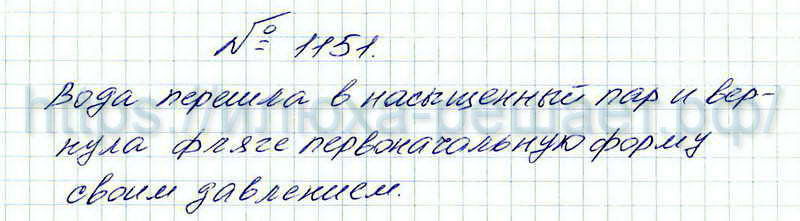 № 1151.
Вода перешла в насыщенный пар и вер-
нула фляге первоначальную форму
своим давлением.